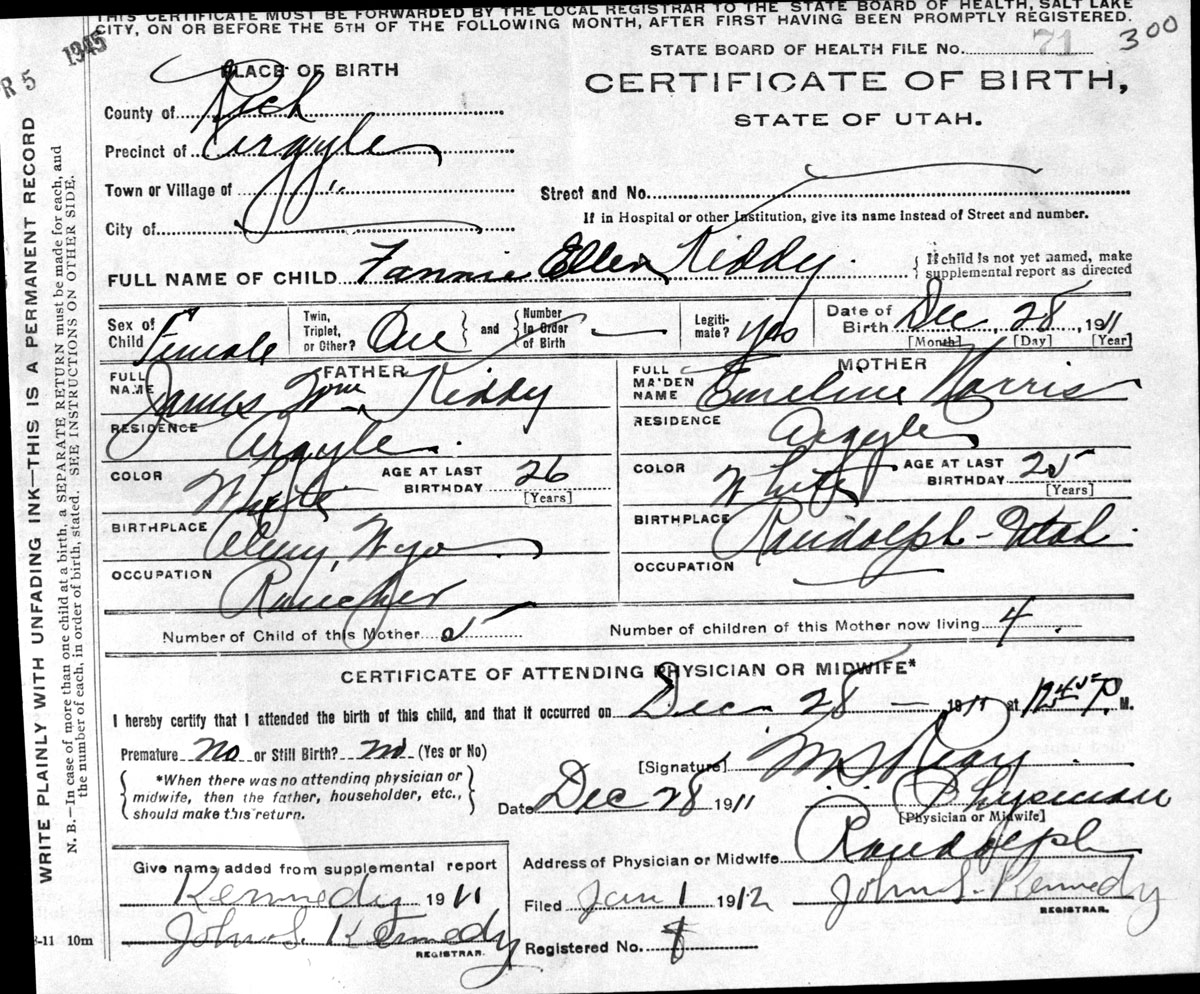 THIS CERTIFICATE MUST BE FORWARDED BY THE LOCAL REGISTRAR TO THE STATE BOARD OF HEALTH, SALT LAKE
CITY, ON OR BEFORE THE 5TH OF THE FOLLOWING MONTH, AFTER FIRST HAVING BEEN PROMPTLY REGISTERED.
R 5 1945
STATE BOARD OF HEALTH FILE No. 71 300
PLACE OF BIRTH
CERTIFICATE OF BIRTH,
STATE OF UTAH.
County of Rich
Precinct of Argyle
Town or Village of
Street and No.
If in Hospital or other Institution, give its name instead of Street and number.
City of
FULL NAME OF CHILD Fannie Ellen Kiddy
If child is not yet named, make
supplemental report as directed
Sex of Child Female
Twin, Triplet, or Other? One and Number in Order of Birth —
Legitimate? Yes
Date of Birth Dec 28, 1911
[Month] [Day] [Year]
FATHER
MOTHER
FULL NAME James Wm Kiddy
FULL MAIDEN NAME Emeline Norris
RESIDENCE Argyle
RESIDENCE Argyle
COLOR White AGE AT LAST BIRTHDAY 26 [Years]
COLOR White AGE AT LAST BIRTHDAY 25 [Years]
BIRTHPLACE Almy, Wyo
BIRTHPLACE Randolph - Utah
OCCUPATION Rancher
OCCUPATION
Number of Child of this Mother 5
Number of children of this Mother now living 4.
CERTIFICATE OF ATTENDING PHYSICIAN OR MIDWIFE*
I hereby certify that I attended the birth of this child, and that it occurred on Dec 28 — 1911 at P. M.
Premature No or Still Birth? No (Yes or No)
[Signature]
*When there was no attending physician or
midwife, then the father, householder, etc.,
should make this return.
Date Dec 28 1911
Physician
[Physician or Midwife]
Address of Physician or Midwife Randolph
Give name added from supplemental report
Kennedy 1911
John S. Kennedy
REGISTRAR.
Filed Jan 1 1912 John S. Kennedy
REGISTRAR.
Registered No.
-11 10m
WRITE PLAINLY WITH UNFADING INK—THIS IS A PERMANENT RECORD
N. B.—In case of more than one child at a birth, a SEPARATE RETURN must be made for each, and
the number of each, in order of birth, stated. SEE INSTRUCTIONS ON OTHER SIDE.